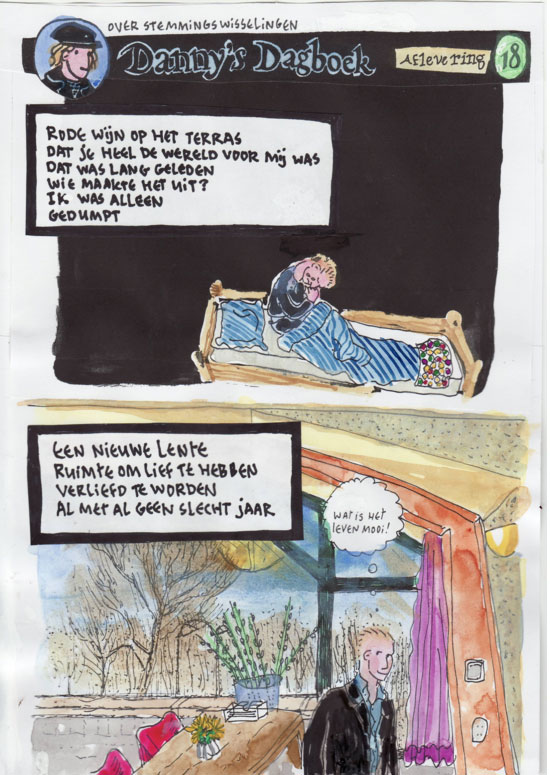 OVER STEMMINGSWISSELINGEN
Danny's Dagboek
Aflevering
18
RODE WIJN OP HET TERRAS
DAT JE HEEL DE WERELD VOOR MIJ WAS
DAT WAS LANG GELEDEN
WIE MAAKTE HET UIT?
IK WAS ALLEEN
GEDUMPT
EEN NIEUWE LENTE
RUIMTE OM LIEF TE HEBBEN
VERLIEFD TE WORDEN
AL MET AL GEEN SLECHT JAAR
WAT IS HET
LEVEN MOOI!